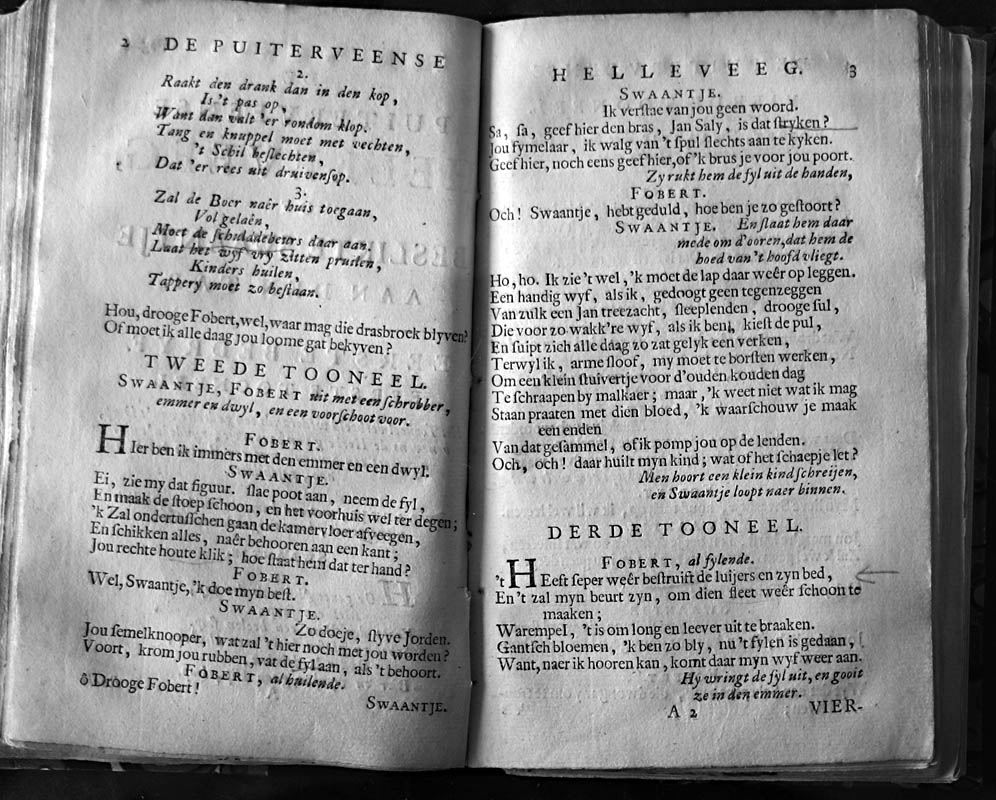 2 DE PUITERVEENSE
2.
Raakt den drank dan in den kop,
Is 't pas op,
Want dan valt 'er rondom klop.
Tang en knuppel moet met vechten,
't Schil beſlechten,
Dat 'er rees uit druivenſop.
3.
Zal de Boer naêr huis toegaan,
Vol gelaên,
Moet de ſchuldebeurs daar aan.
Laat het wyf vry zitten pruilen,
Kinders huilen,
Tappery moet zo beſtaan.
Hou, drooge Fobert, wel, waar mag die drasbroek blyven?
Of moet ik alle daag jou loome gat bekyven?
TWEEDE TOONEEL.
SWAANTJE, FOBERT uit met een ſchrobber,
emmer en dwyl, en een voorſchoot voor.
FOBERT.
HIer ben ik immers met den emmer en een dwyl.
SWAANTJE.
Ei, zie my dat figuur. ſlae poot aan, neem de ſyl,
En maak de ſtoep ſchoon, en het voorhuis wel ter degen;
'k Zal ondertuſſchen gaan de kamervloer afveegen,
En ſchikken alles, naêr behooren aan een kant;
Jou rechte houte klik; hoe ſtaat hem dat ter hand?
FOBERT.
Wel, Swaantje, 'k doe myn beſt.
SWAANTJE.
Zo doeje, ſtyve Jorden.
Jou ſemelknooper, wat zal 't hier noch met jou worden?
Voort, krom jou rubben, vat de ſyl aan, als 't behoort.
FOBERT, al huilende.
ô Drooge Fobert!
SWAANTJE.
HELLEVEEG. 3
SWAANTJE.
Ik verſtae van jou geen woord.
Sa, ſa, geef hier den bras, Jan Saly, is dat ſtryken?
Jou fymelaar, ik walg van 't ſpul ſlechts aan te kyken.
Geef hier, noch eens geef hier, of 'k brus je voor jou poort.
Zy rukt hem de ſyl uit de handen,
FOBERT.
Och! Swaantje, hebt geduld, hoe ben je zo geſtoort?
SWAANTJE. En ſlaat hem daar
mede om d'ooren, dat hem de
hoed van 't hoofd vliegt.
Ho, ho. Ik zie 't wel, 'k moet de lap daar weêr op leggen.
Een handig wyf, als ik, gedoogt geen tegenzeggen
Van zulk een Jan treezacht, ſleeplenden, drooge ſul,
Die voor zo wakk're wyf, als ik ben, kieſt de pul,
En ſuipt zich alle daag zo zat gelyk een verken,
Terwyl ik, arme ſloof, my moet te borſten werken,
Om een klein ſtuivertje voor d'ouden kouden dag
Te ſchraapen by malkaer; maar, 'k weet niet wat ik mag
Staan praaten met dien bloed, 'k waarſchouw je maak
een enden
Van dat geſammel, of ik pomp jou op de lenden.
Och, och! daar huilt myn kind; wat of het ſchaepje let?
Men hoort een klein kind ſchreijen,
en Swaantje loopt naer binnen.
DERDE TOONEEL.
FOBERT, al ſylende.
't HEeft ſeper weêr beſtruift de luijers en zyn bed,
En 't zal myn beurt zyn, om dien ſleet weêr ſchoon te
maaken;
Warempel, 't is om long en leever uit te braaken.
Gantſch bloemen, 'k ben zo bly, nu 't ſylen is gedaan,
Want, naer ik hooren kan, komt daar myn wyf weer aan.
Hy wringt de ſyl uit, en gooit
ze in den emmer.
A 2 VIER-